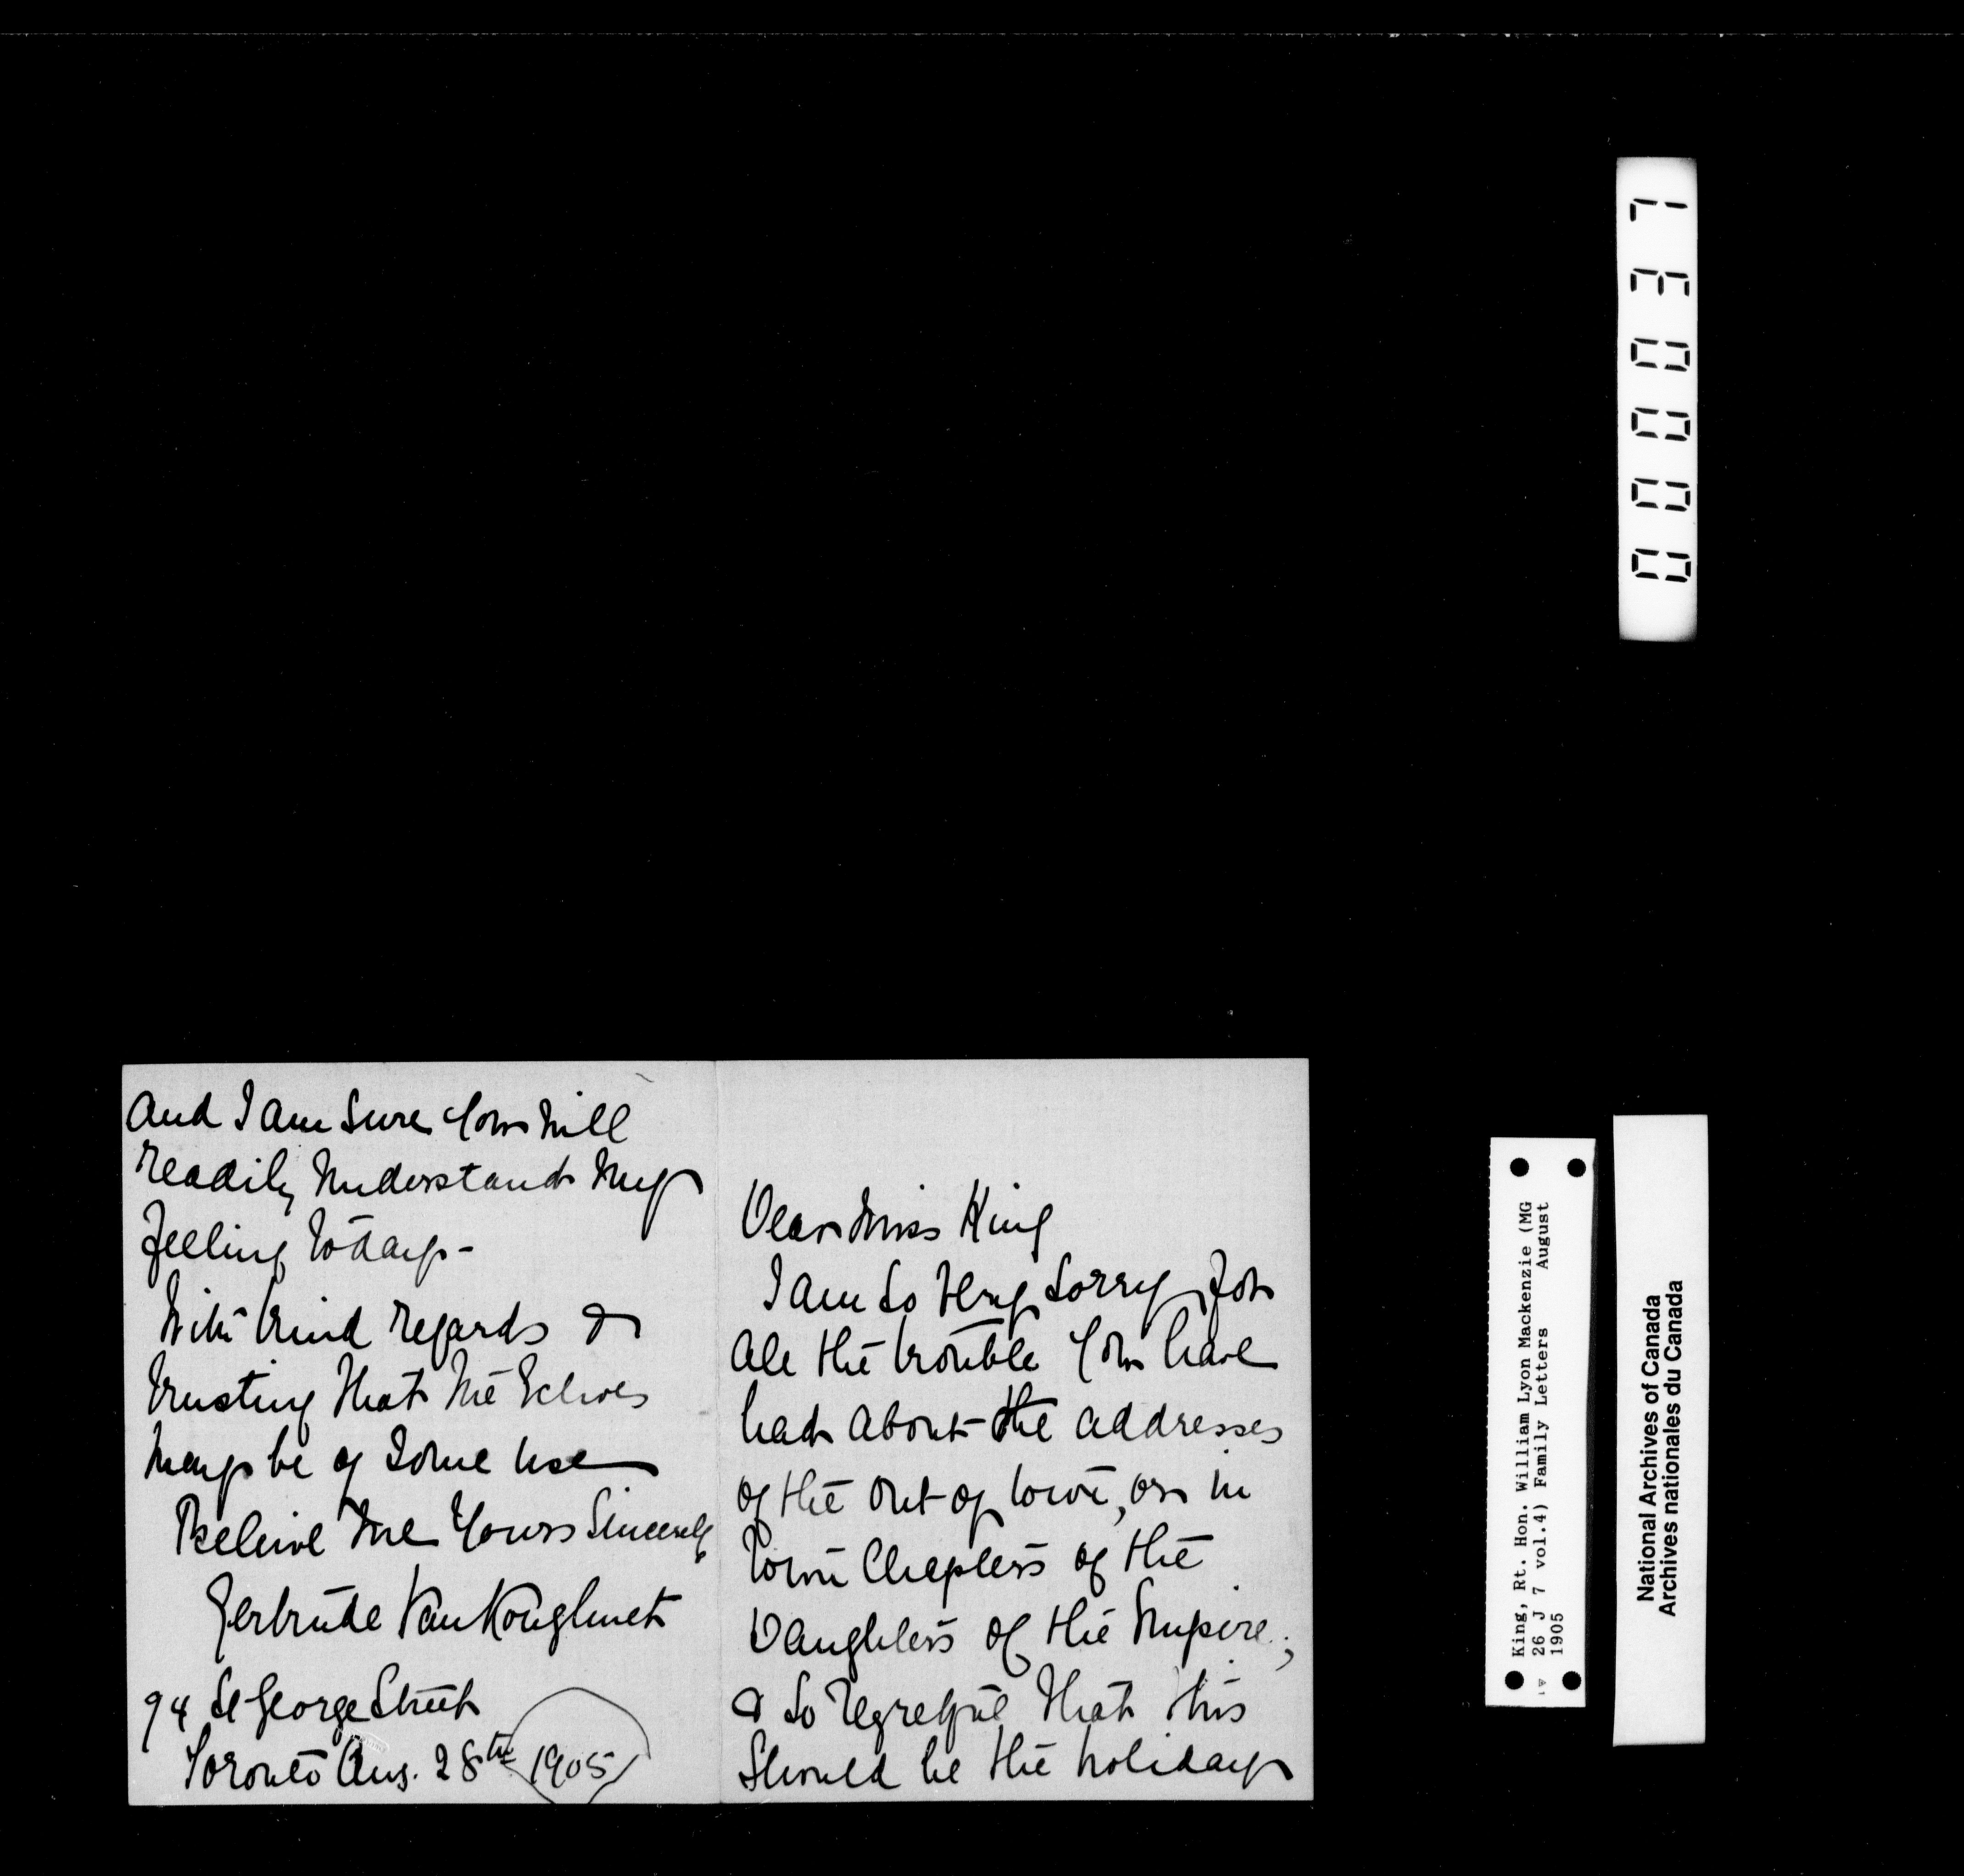 and I am sure you will
readily understand my
feeling today -
With kind regards &
trusting that the
may be of some use
Believe me Yours Sincerely
Gertrude VanKoughnet
94 St George Street
Toronto Aug. 28th 1905
Dear Miss King
I am so very sorry for
all the trouble you have
had about the addresses
of the out of town, or in
town Chapters of the
Daughters of the Empire;
& so regretful that this
should be the holiday
000037
King, Rt. Hon. William Lyon Mackenzie (MG
26 J 7 vol.4) Family Letters August
1905
National Archives of Canada
Archives nationales du Canada